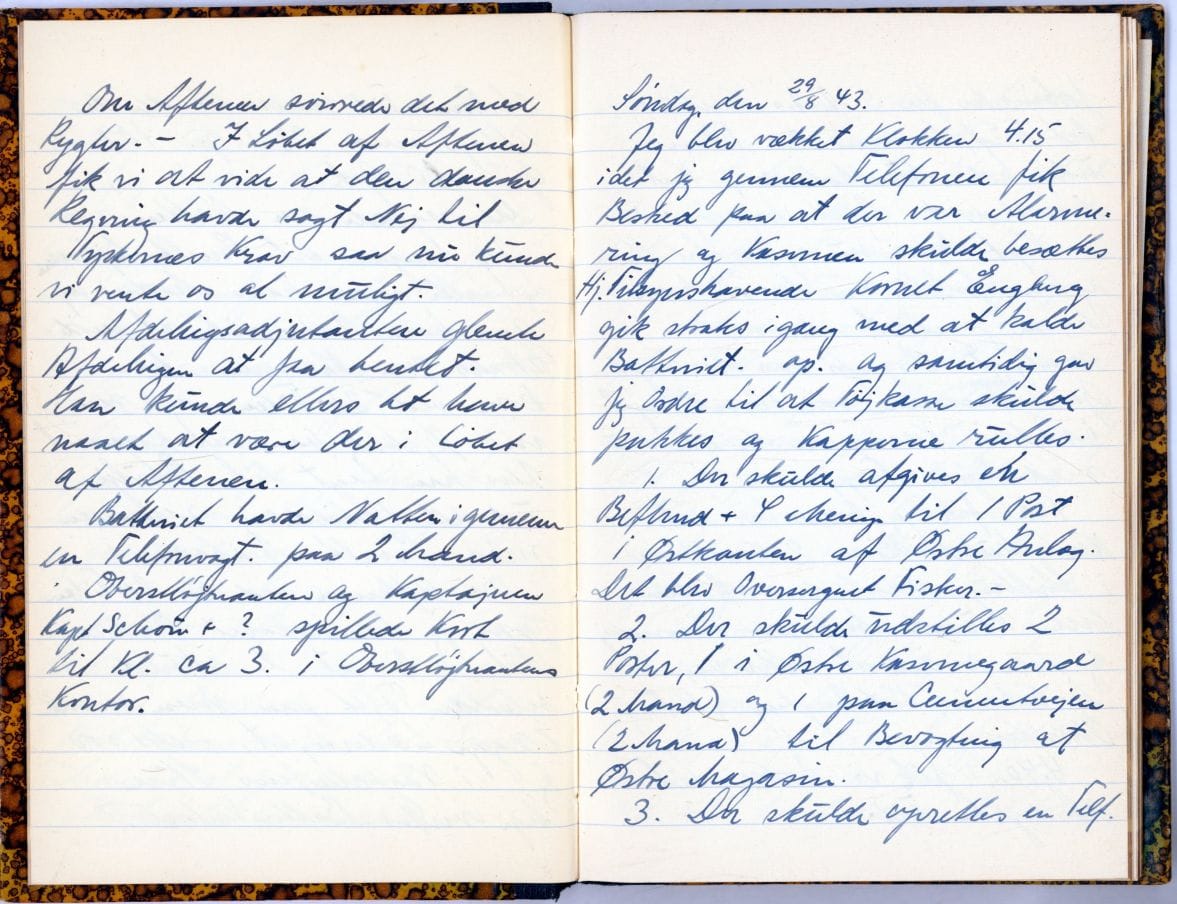 Om Aftenen svirrede det med
Rygter. - I Løbet af Aftenen
fik vi at vide at den danske
Regering havde sagt Nej til
Tyskernes Krav saa nu kunde
vi vente os al muligt.
Afdelingsadjutanten glemte
Afdelingen at faa hentet.
Han kunde ellers let have
naaet at være der i Løbet
af Aftenen.
Batteriet havde Natten igennem
en Telefonvagt. paa 2 Mand.
Oberstløjtnanten og Kaptajnen
Kapt Schou + ? spillede Kort
til Kl. ca 3. i Oberstløjtnantens
Kontor.
Søndag, den 29/8 43.
Jeg blev vækket Klokken 4.15
idet jeg gennem Telefonen fik
Besked paa at der var Alarme-
ring og Kasernen skulde besættes
Hj. Tilsynshavende Kornet Engberg
gik straks igang med at kalde
Batteriet. op. og samtidig gav
jeg Ordre til at Tøjkasse skulde
pakkes og Kapperne rulles.
1. Der skulde afgives en
Befalmd + 4 Menige til 1 Post
i Østkanten af Østre Anlæg.
Det blev Oversergent Fisker. -
2. Der skulde udstilles 2
Poster, 1 i Østre Kasernegaard
(2 Mand) og 1 paa Cementvejen
(2 Mand) til Bevogtning af
Østre Magasin.
3. Der skulde oprettes en Telf.